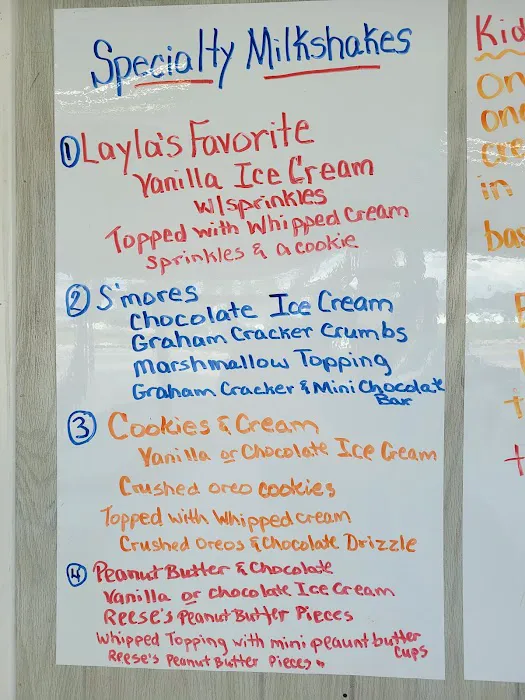 Specialty Milkshakes
① Layla's Favorite
Vanilla Ice Cream
w/sprinkles
Topped with Whipped Cream
sprinkles & a cookie
② S'mores
Chocolate Ice Cream
Graham Cracker Crumbs
Marshmallow Topping
Graham Cracker & Mini Chocolate
Bar
③ Cookies & Cream
Vanilla or Chocolate Ice Cream
Crushed oreo cookies
Topped with Whipped cream
Crushed Oreos & Chocolate Drizzle
④ Peanut Butter & Chocolate
Vanilla or chocolate Ice Cream
Reese's Peanut Butter Pieces
Whipped Topping with mini peaunt butter
cups
Reese's Peanut Butter Pieces
Kid
on
one
cre
in
bas